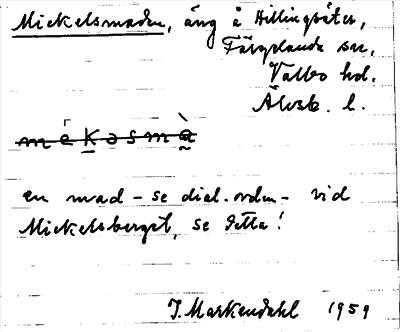 Mickelsmaden, äng å Hillingsäter,
Färgelanda sn,
Valbo hd.
Älvsb. l.
mékəsmà
en mad - se dial.orden - vid
Mickelsberget, se detta!
J. Markendahl 1959